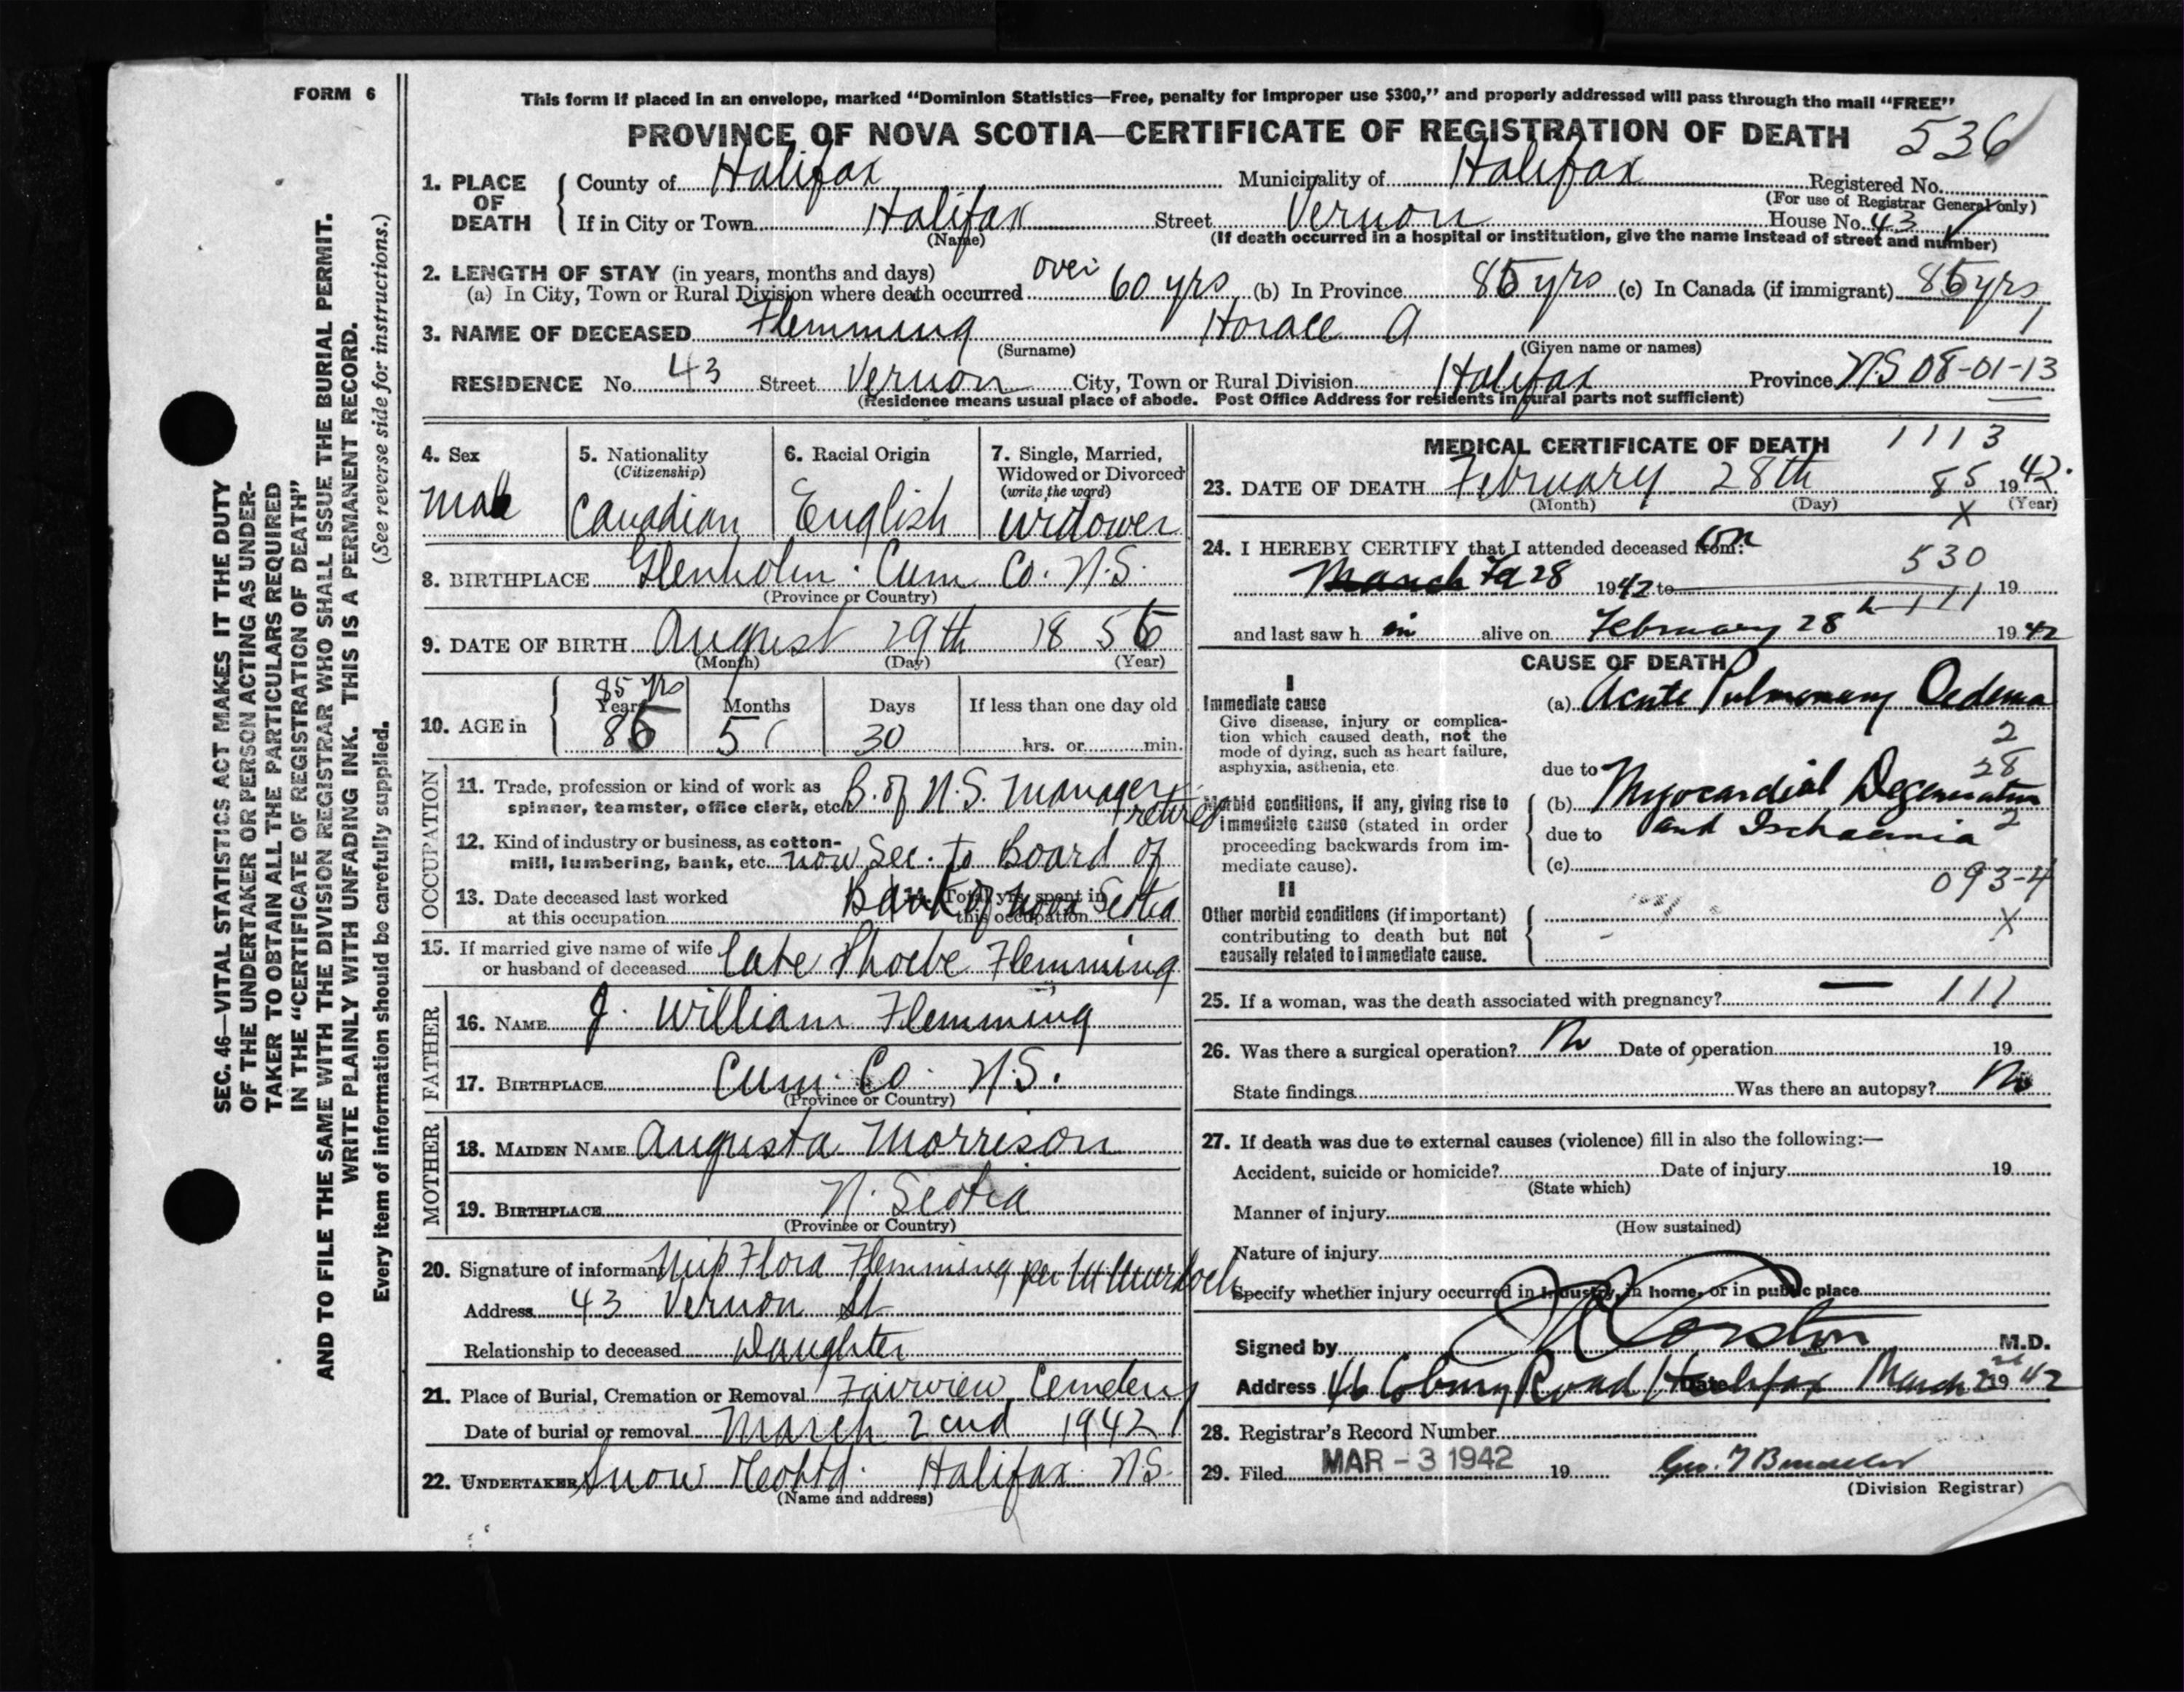 FORM 6
This form if placed in an envelope, marked “Dominion Statistics—Free, penalty for improper use $300,” and properly addressed will pass through the mail “FREE”
PROVINCE OF NOVA SCOTIA—CERTIFICATE OF REGISTRATION OF DEATH 536
1. PLACE OF DEATH
County of Halifax Municipality of Halifax Registered No.
(For use of Registrar General only)
If in City or Town Halifax Street Vernon House No. 43
(Name) (If death occurred in a hospital or institution, give the name instead of street and number)
2. LENGTH OF STAY (in years, months and days)
(a) In City, Town or Rural Division where death occurred over 60 yrs (b) In Province 85 yrs (c) In Canada (if immigrant) 85 yrs
3. NAME OF DECEASED Flemming Horace A
(Surname) (Given name or names)
RESIDENCE No. 43 Street Vernon City, Town or Rural Division Halifax Province N.S 08-01-13
(Residence means usual place of abode. Post Office Address for residents in rural parts not sufficient)
4. Sex
Male
5. Nationality
(Citizenship)
Canadian
6. Racial Origin
English
7. Single, Married,
Widowed or Divorced
(write the word)
widower
8. BIRTHPLACE Glenholm. Cum Co. N.S.
(Province or Country)
9. DATE OF BIRTH August 29th 1856
(Month) (Day) (Year)
10. AGE in
85 yrs
Years Months Days If less than one day old
85 5 30 hrs. or min.
OCCUPATION
11. Trade, profession or kind of work as
spinner, teamster, office clerk, etc. B. of N.S. Manager
retired
12. Kind of industry or business, as cotton-
mill, lumbering, bank, etc. now Sec. to Board of
13. Date deceased last worked
at this occupation
Total yrs. spent in
this occupation
Bank of Nova Scotia
15. If married give name of wife
or husband of deceased late Phoebe Flemming
FATHER
16. NAME J. William Flemming
17. BIRTHPLACE Cum. Co. N.S.
(Province or Country)
MOTHER
18. MAIDEN NAME Augusta Morrison
19. BIRTHPLACE N. Scotia
(Province or Country)
20. Signature of informant Miss Flora Flemming per M Murdoch
Address 43 Vernon St
Relationship to deceased Daughter
21. Place of Burial, Cremation or Removal Fairview Cemetery
Date of burial or removal March 2cnd 1942
22. UNDERTAKER Snow Halifax N.S.
(Name and address)
MEDICAL CERTIFICATE OF DEATH 1113
23. DATE OF DEATH February 28th 85 1942.
(Month) (Day) (Year)
X
24. I HEREBY CERTIFY that I attended deceased from: on
530
March Feb 28 1942 to 19
111
and last saw h im alive on February 28th 1942
CAUSE OF DEATH
I
Immediate cause
Give disease, injury or complica-
tion which caused death, not the
mode of dying, such as heart failure,
asphyxia, asthenia, etc.
(a) Acute Pulmonary Oedema
2
28
due to
Morbid conditions, if any, giving rise to
immediate cause (stated in order
proceeding backwards from im-
mediate cause).
(b) Myocardial Degeneration
due to and Ischaemia 2
(c)
093-4
II
Other morbid conditions (if important)
contributing to death but not
causally related to immediate cause.
X
25. If a woman, was the death associated with pregnancy? — 111
26. Was there a surgical operation? No Date of operation 19
State findings Was there an autopsy? No
27. If death was due to external causes (violence) fill in also the following:—
Accident, suicide or homicide? Date of injury 19
(State which)
Manner of injury
(How sustained)
Nature of injury
Specify whether injury occurred in industry, in home, or in public place
Signed by Corston M.D.
Address 46 Coburg Road Halifax Date March 2 1942
28. Registrar's Record Number
29. Filed MAR - 3 1942 19
(Division Registrar)
SEC. 46—VITAL STATISTICS ACT MAKES IT THE DUTY
OF THE UNDERTAKER OR PERSON ACTING AS UNDER-
TAKER TO OBTAIN ALL THE PARTICULARS REQUIRED
IN THE “CERTIFICATE OF REGISTRATION OF DEATH”
AND TO FILE THE SAME WITH THE DIVISION REGISTRAR WHO SHALL ISSUE THE BURIAL PERMIT.
WRITE PLAINLY WITH UNFADING INK. THIS IS A PERMANENT RECORD.
Every item of information should be carefully supplied. (See reverse side for instructions.)